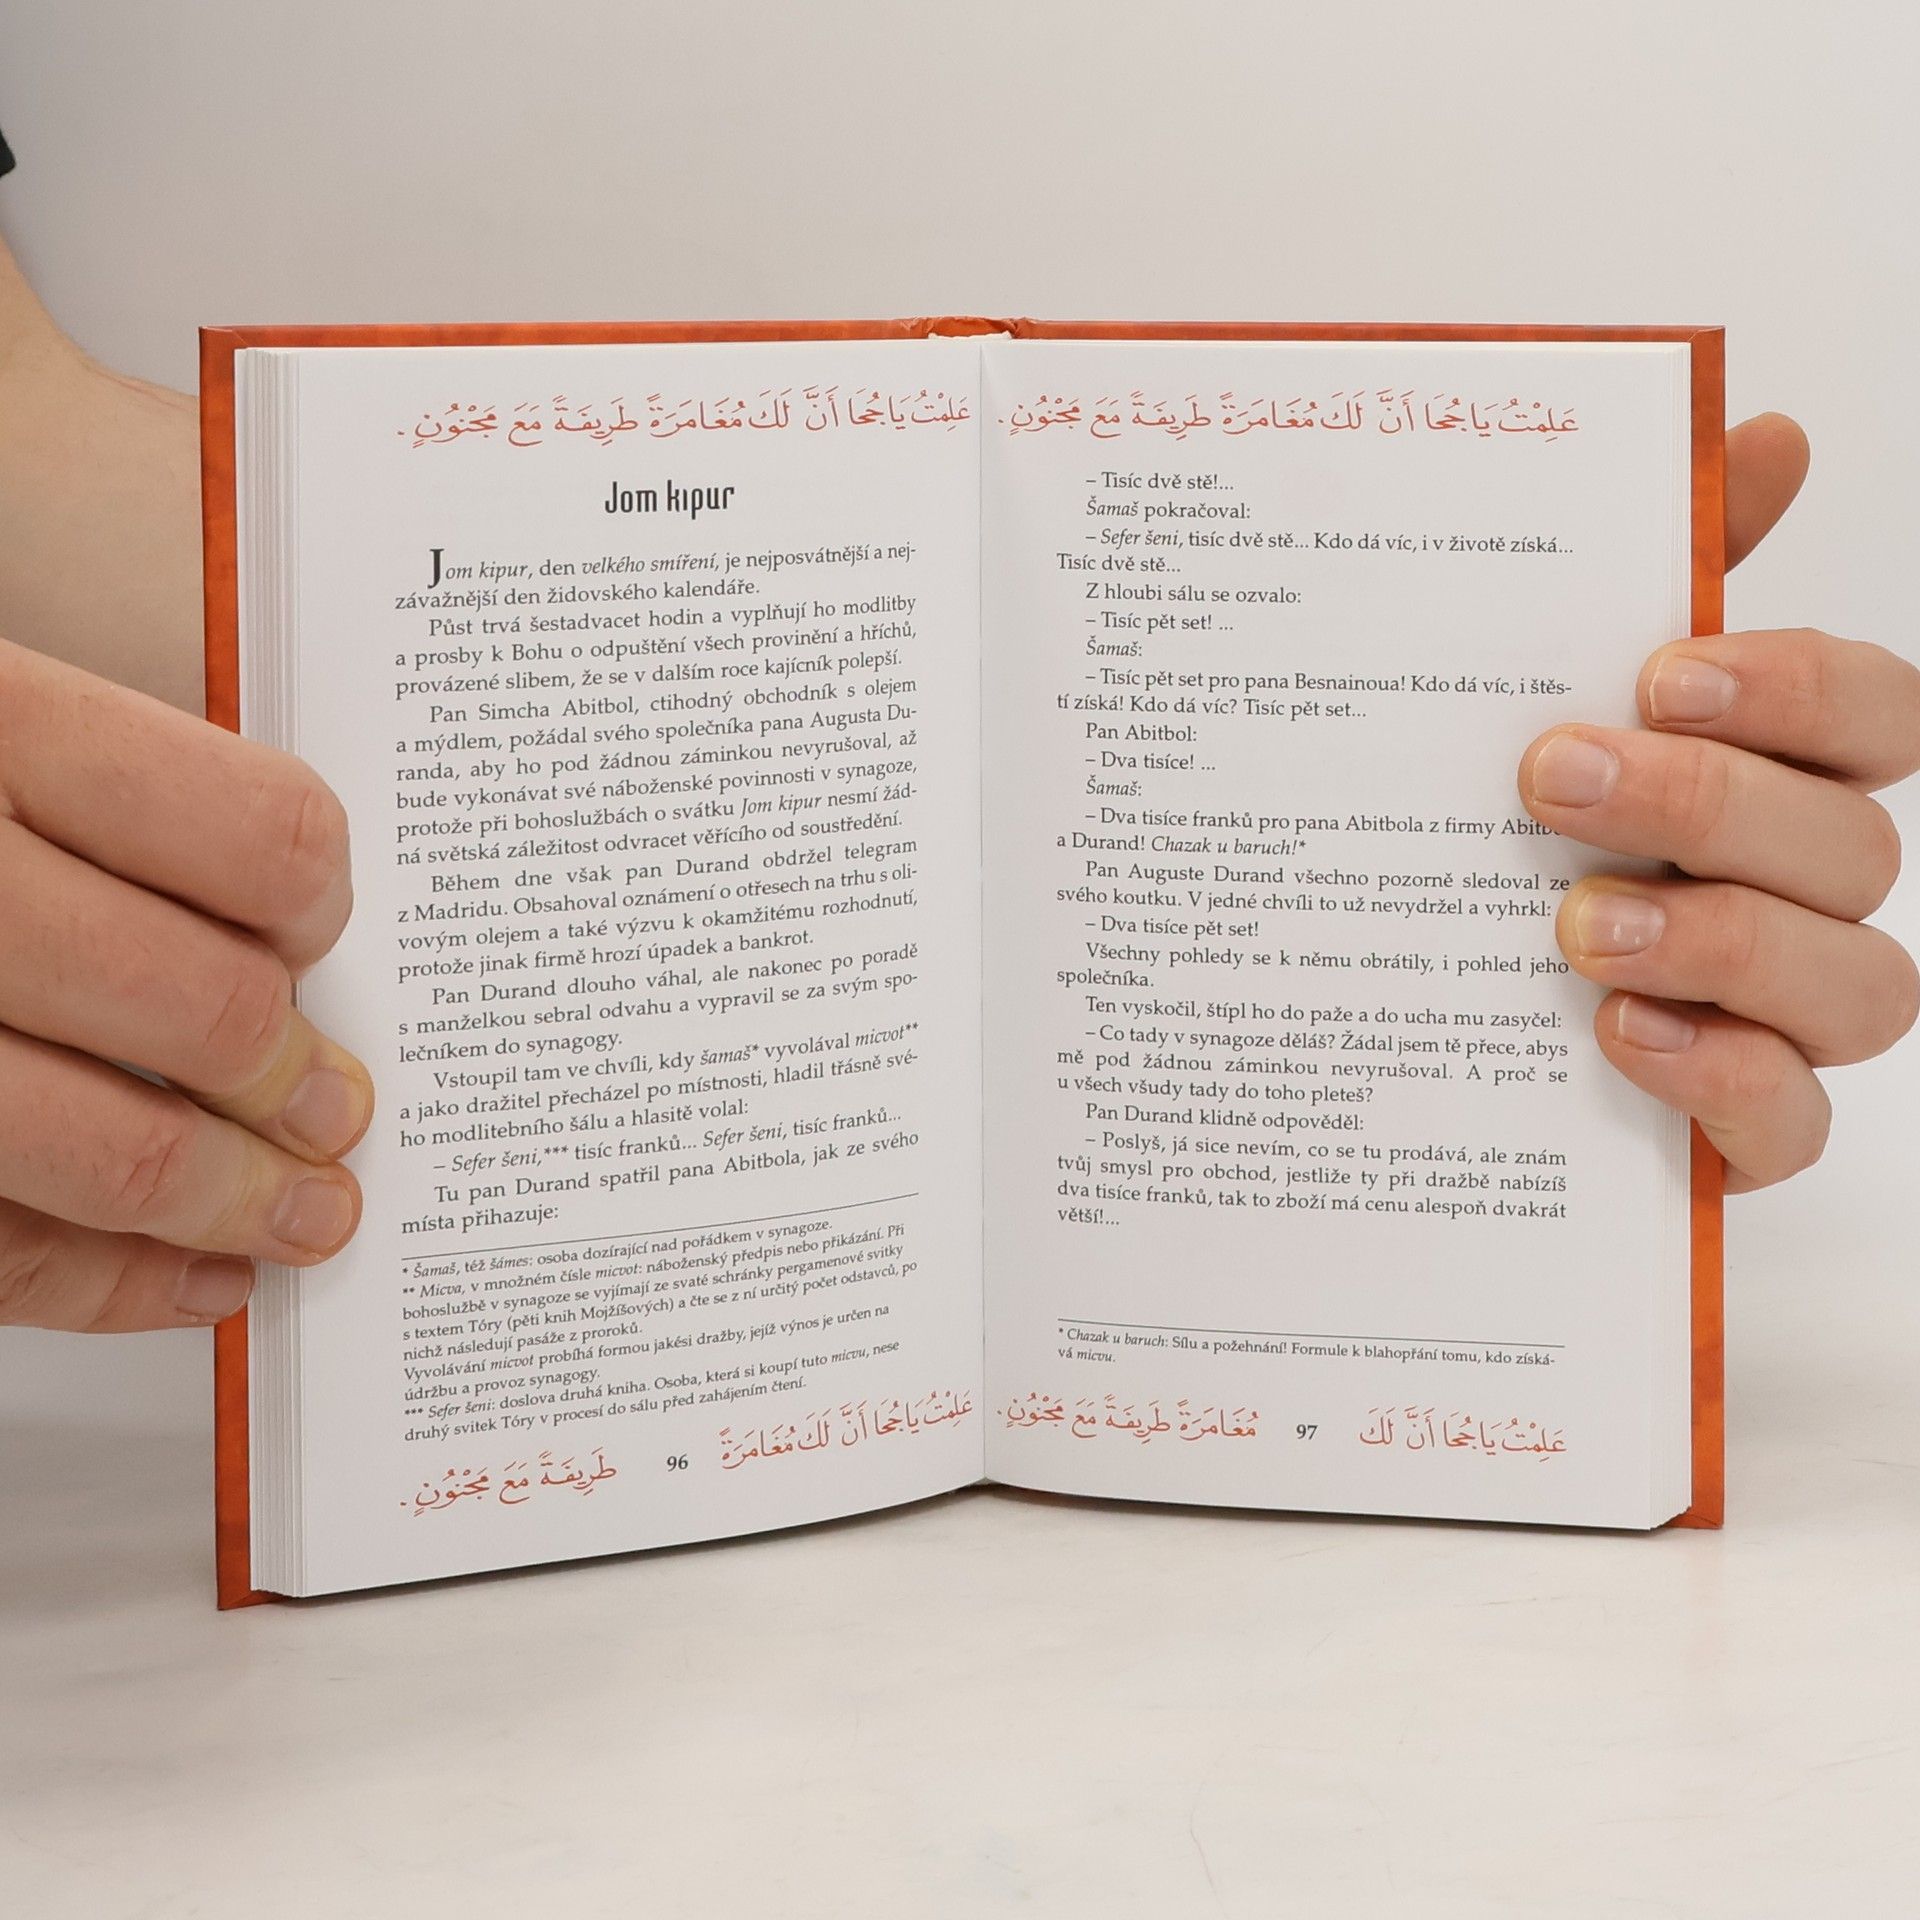 عَلِمْتُ يَا جُحَا أَنَّ لَكَ مُغَامَرَةً طَرِيفَةً مَعَ مَجْنُونٍ.
Jom kipur
Jom kipur, den velkého smíření, je nejposvátnější a nej-
závažnější den židovského kalendáře.
Půst trvá šestadvacet hodin a vyplňují ho modlitby
a prosby k Bohu o odpuštění všech provinění a hříchů,
provázené slibem, že se v dalším roce kajícník polepší.
Pan Simcha Abitbol, ctihodný obchodník s olejem
a mýdlem, požádal svého společníka pana Augusta Du-
randa, aby ho pod žádnou záminkou nevyrušoval, až
bude vykonávat své náboženské povinnosti v synagoze,
protože při bohoslužbách o svátku Jom kipur nesmí žád-
ná světská záležitost odvracet věřícího od soustředění.
Během dne však pan Durand obdržel telegram
z Madridu. Obsahoval oznámení o otřesech na trhu s oli-
vovým olejem a také výzvu k okamžitému rozhodnutí,
protože jinak firmě hrozí úpadek a bankrot.
Pan Durand dlouho váhal, ale nakonec po poradě
s manželkou sebral odvahu a vypravil se za svým spo-
lečníkem do synagogy.
Vstoupil tam ve chvíli, kdy šamaš* vyvolával micvot**
a jako dražitel přecházel po místnosti, hladil třásně své-
ho modlitebního šálu a hlasitě volal:
– Sefer šeni,*** tisíc franků... Sefer šeni, tisíc franků...
Tu pan Durand spatřil pana Abitbola, jak ze svého
místa přihazuje:
* Šamaš, též šámes: osoba dozírající nad pořádkem v synagoze.
** Micva, v množném čísle micvot: náboženský předpis nebo přikázání. Při
bohoslužbě v synagoze se vyjímají ze svaté schránky pergamenové svitky
s textem Tóry (pěti knih Mojžíšových) a čte se z ní určitý počet odstavců, po
nichž následují pasáže z proroků.
Vyvolávání micvot probíhá formou jakési dražby, jejíž výnos je určen na
údržbu a provoz synagogy.
*** Sefer šeni: doslova druhá kniha. Osoba, která si koupí tuto micvu, nese
druhý svitek Tóry v procesí do sálu před zahájením čtení.
عَلِمْتُ يَا جُحَا أَنَّ لَكَ مُغَامَرَةً 96 طَرِيفَةً مَعَ مَجْنُونٍ.
عَلِمْتُ يَا جُحَا أَنَّ لَكَ مُغَامَرَةً طَرِيفَةً مَعَ مَجْنُونٍ.
– Tisíc dvě stě!...
Šamaš pokračoval:
– Sefer šeni, tisíc dvě stě... Kdo dá víc, i v životě získá...
Tisíc dvě stě...
Z hloubi sálu se ozvalo:
– Tisíc pět set! ...
Šamaš:
– Tisíc pět set pro pana Besnainoua! Kdo dá víc, i štěs-
tí získá! Kdo dá víc? Tisíc pět set...
Pan Abitbol:
– Dva tisíce! ...
Šamaš:
– Dva tisíce franků pro pana Abitbola z firmy
a Durand! Chazak u baruch!*
Pan Auguste Durand všechno pozorně sledoval ze
svého koutku. V jedné chvíli to už nevydržel a vyhrkl:
– Dva tisíce pět set!
Všechny pohledy se k němu obrátily, i pohled jeho
společníka.
Ten vyskočil, štípl ho do paže a do ucha mu zasyčel:
– Co tady v synagoze děláš? Žádal jsem tě přece, abys
mě pod žádnou záminkou nevyrušoval. A proč se
u všech všudy tady do toho pleteš?
Pan Durand klidně odpověděl:
– Poslyš, já sice nevím, co se tu prodává, ale znám
tvůj smysl pro obchod, jestliže ty při dražbě nabízíš
dva tisíce franků, tak to zboží má cenu alespoň dvakrát
větší!...
* Chazak u baruch: Sílu a požehnání! Formule k blahopřání tomu, kdo získá-
vá micvu.
عَلِمْتُ يَا جُحَا أَنَّ لَكَ 97 مُغَامَرَةً طَرِيفَةً مَعَ مَجْنُونٍ.